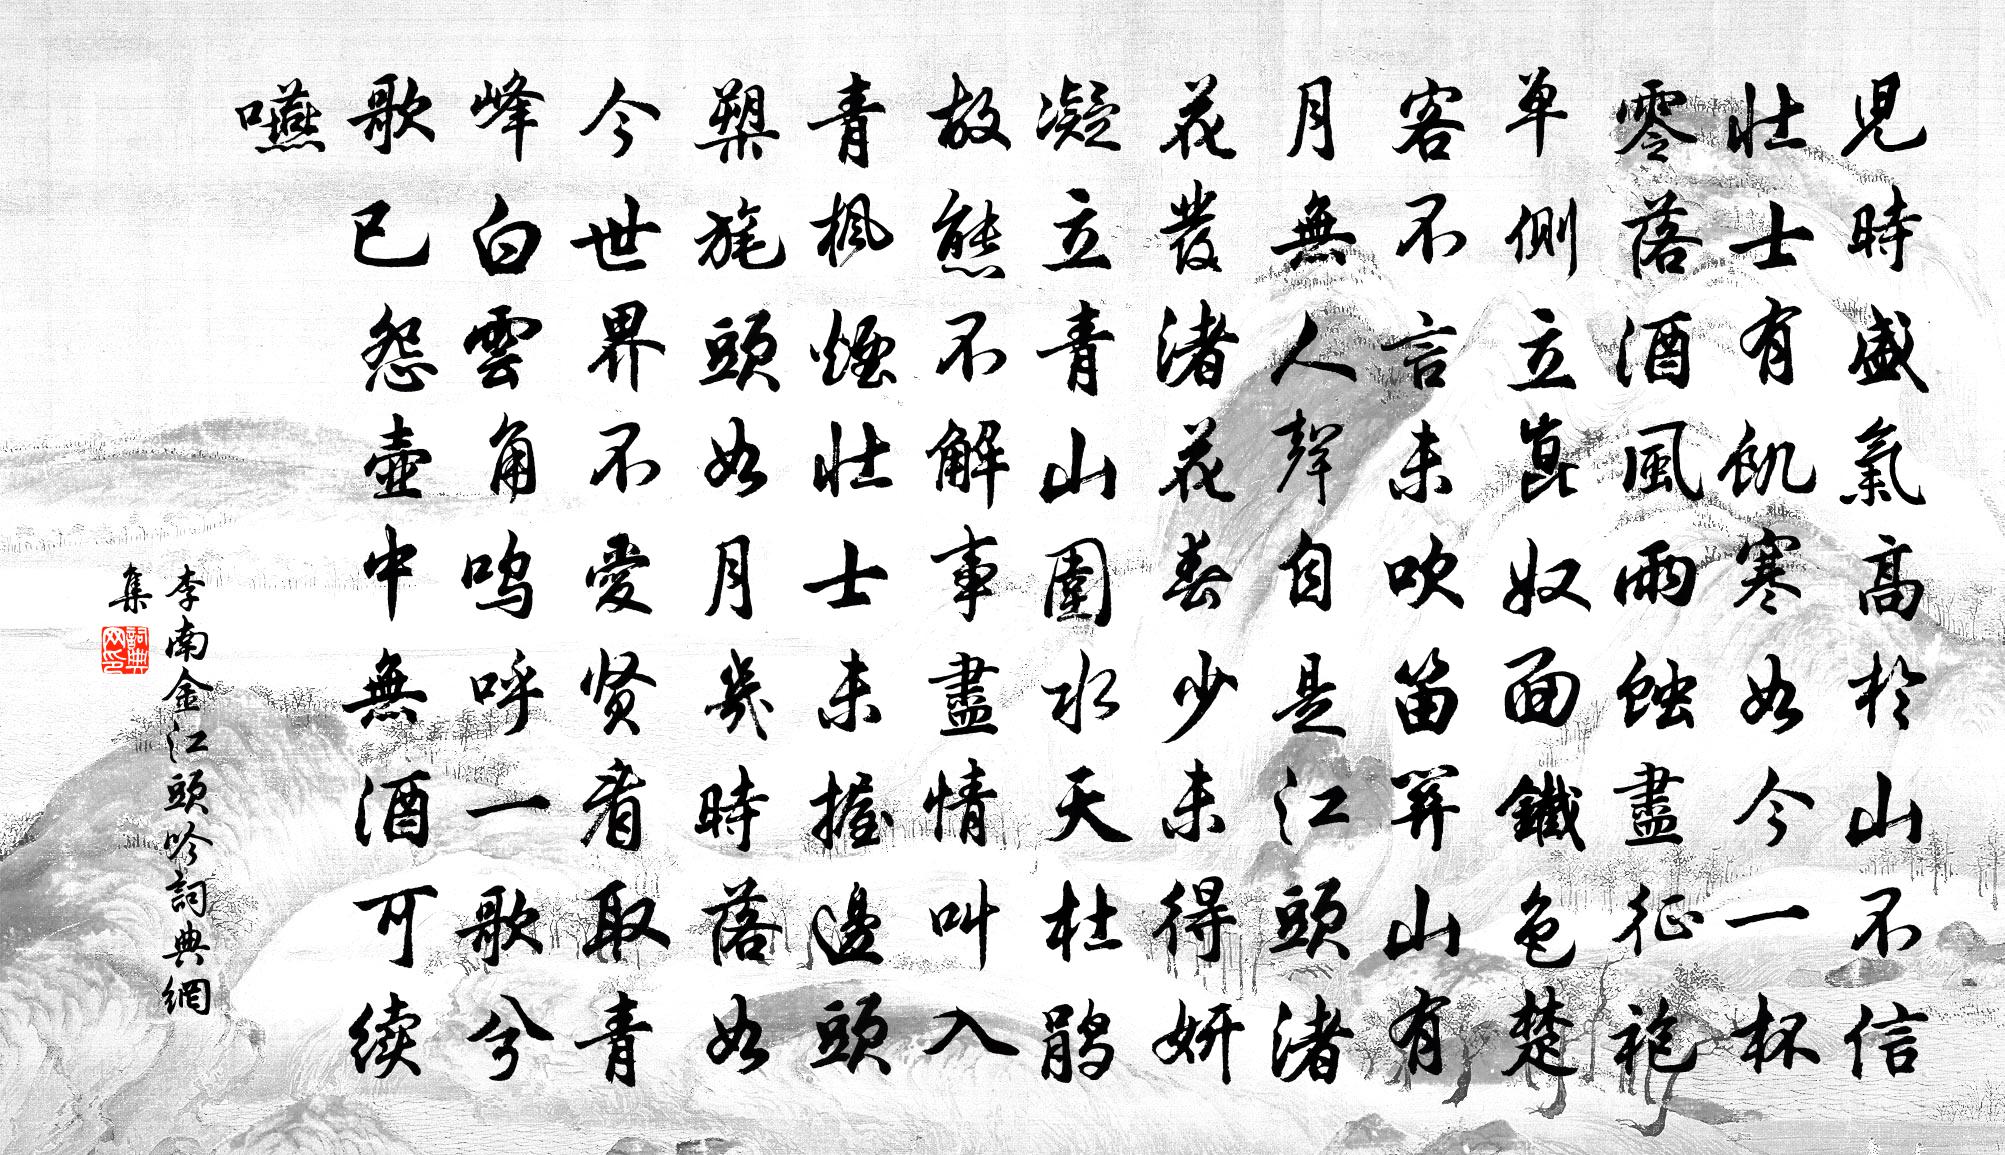 兒時盛氣高於山不信
壯士有飢寒如今一杯
零落酒風雨蝕盡征袍
單側立崑奴面鐵色楚
客不言未吹笛笄山有
月無人聲自是江頭渚
花發渚花春少未得妍
凝立青山圍水天杜鵑
故態不解事盡情叫入
青楓煙壯士未握邊頭
槊旄頭如月幾時落如
今世界不愛賢看取青
峰白雲角嗚呼一歌兮
歌已怨壺中無酒可續
嚥
李南金江頭吟詞典網
集
詞典
网印